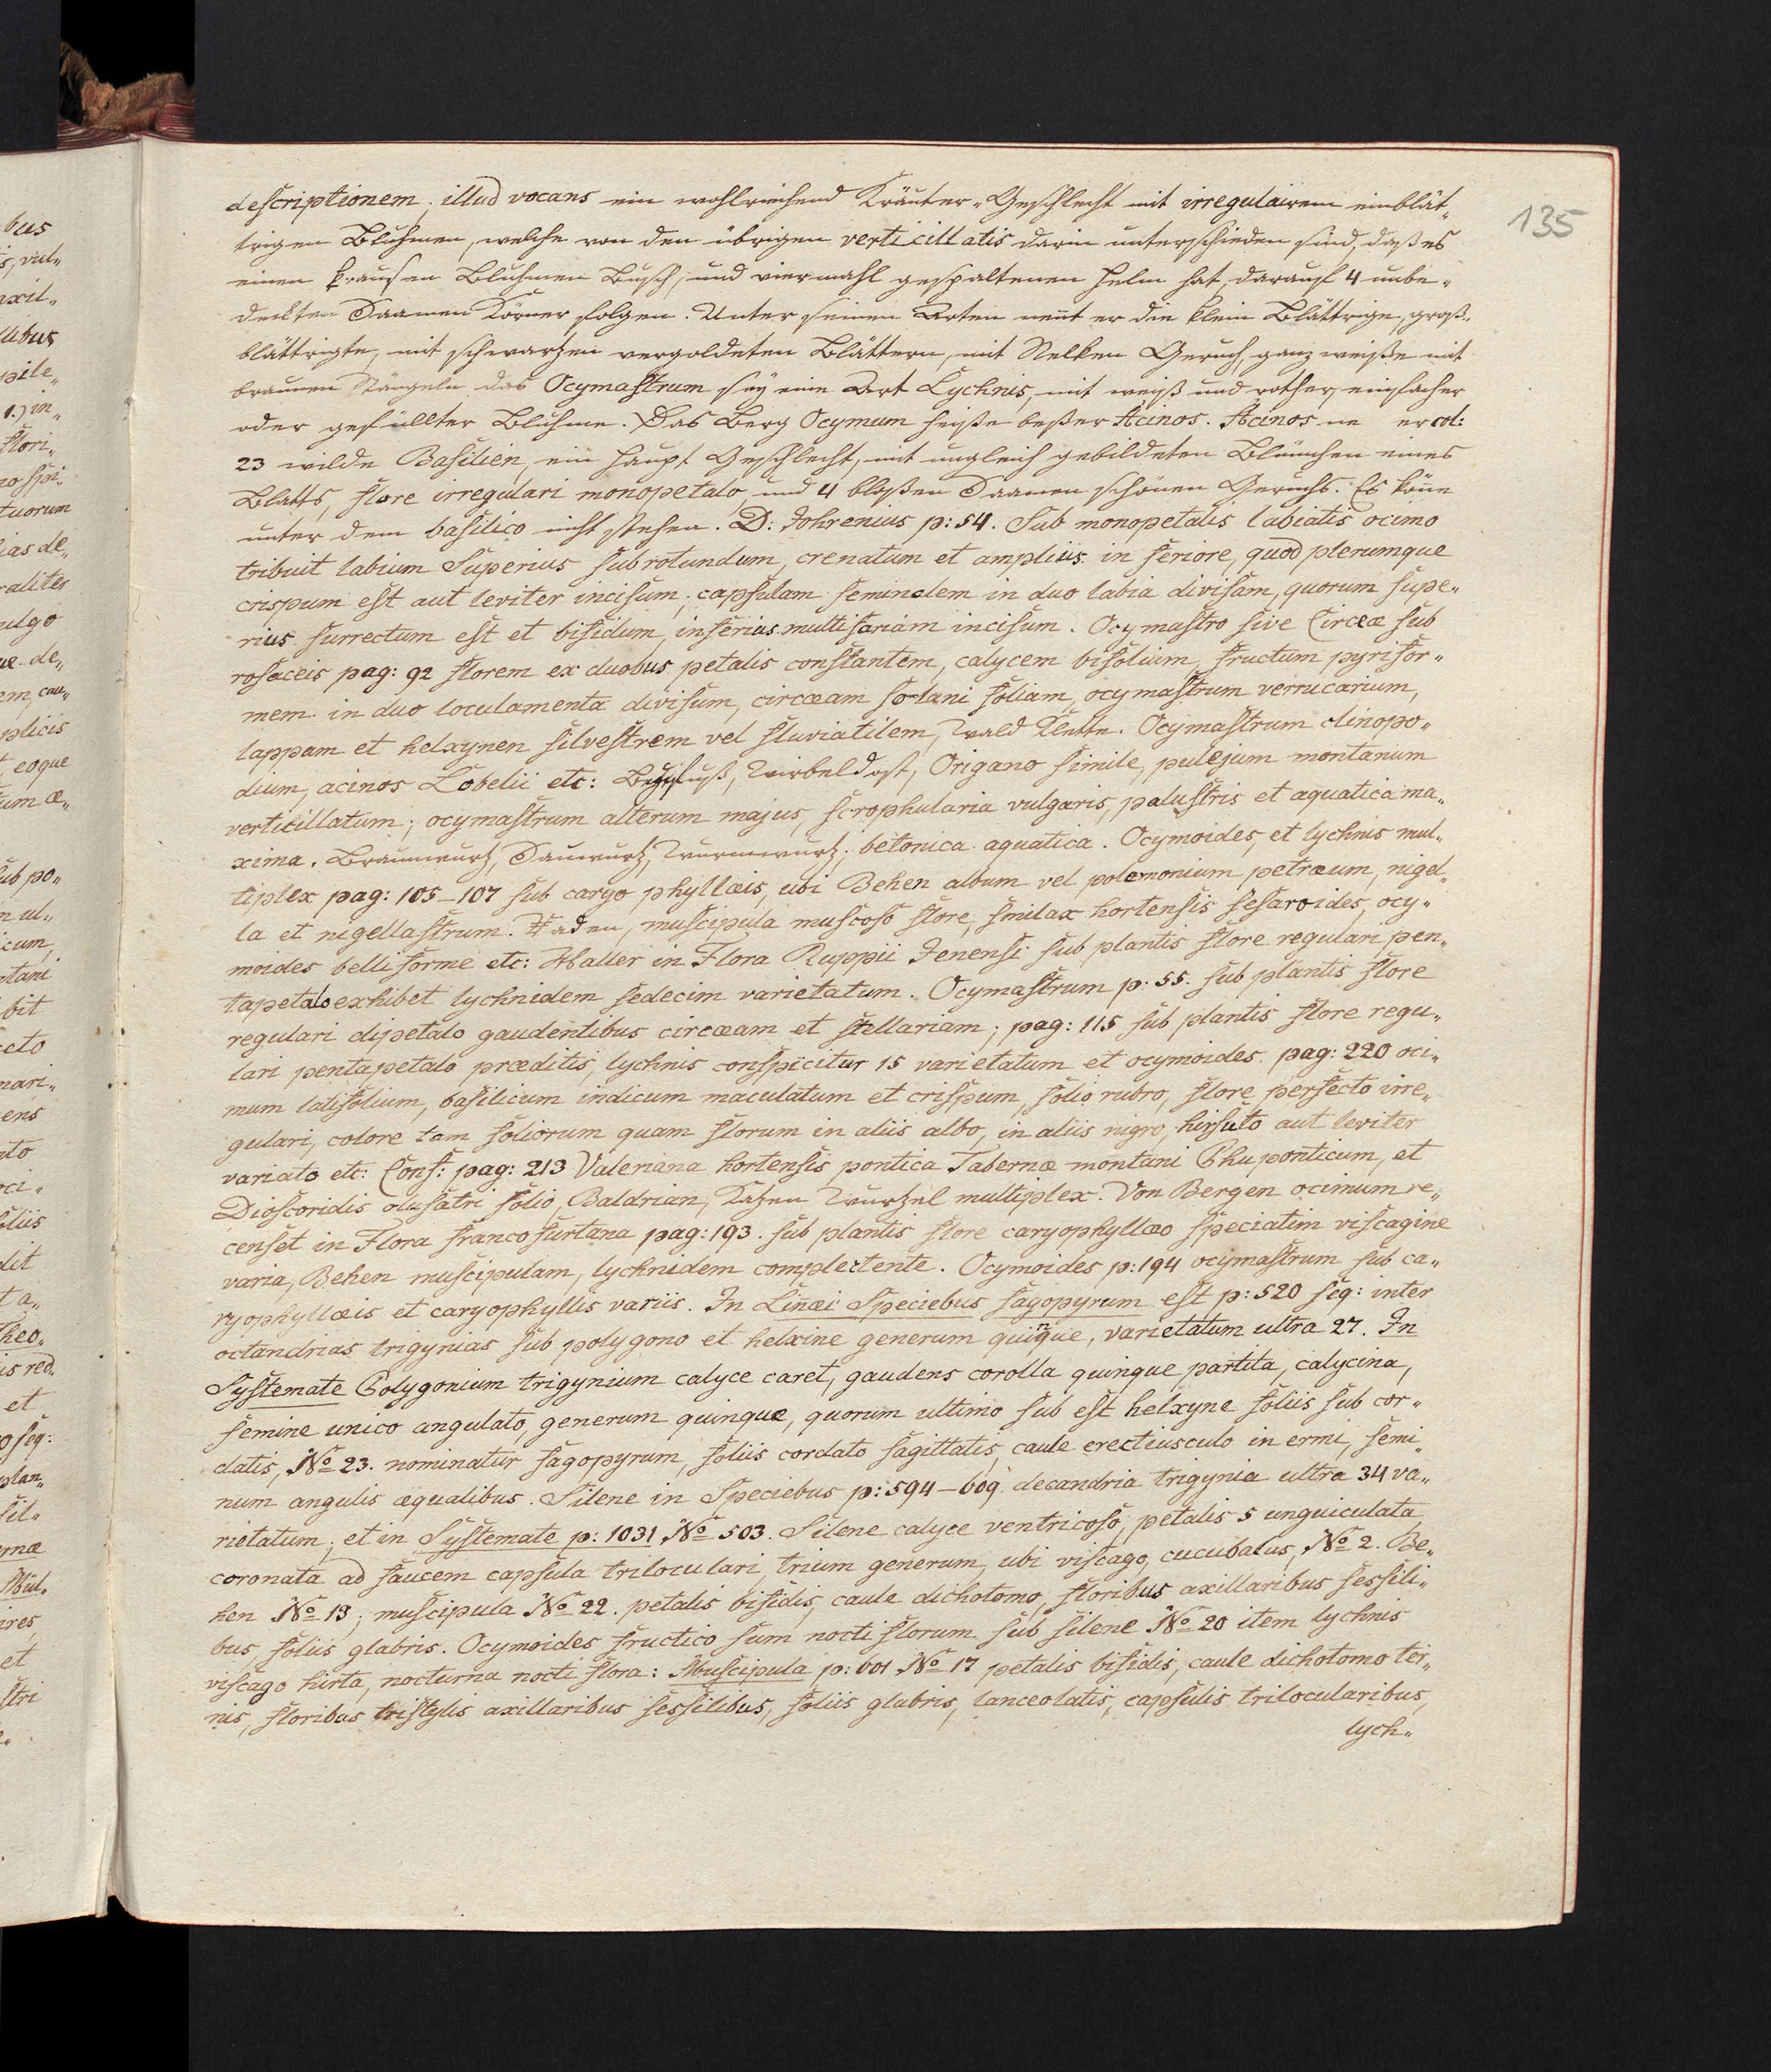 135
descriptionem; illud vocans ein wohlriechend Kräuter„Geschlecht mit irregulairem einblät„
trigen Bluhmen, welche von den übrigen verticillatis darin unterschieden sind, daß es
einen krausen Bluhmen Busch, und viermahl gespaltenen Helm hat, darauf 4 unbe„
deckten Saamen Körner folgen. Unter seinen Arten nent er die klein Blättrige, groß„
blättrigte, mit schwartzen vergoldeten Blättern, mit Nelken Geruch, ganz weiße mit
braunen Stängeln das Ocymastrum sey eine Art Lychnis, mit weiß und rother, einfacher
oder gefüllter Bluhme. Das Berg Ocymum heiße beßer Acinos. Acinos ne er col:
23 wilde Basilien, ein Haupt Geschlecht, mit ungleich gebildeten Blümchen eines
Blatts, flore irregulari monopetalo, und 4 bloßen Saamen schönen Geruchs. Es köne
unter dem basilico nicht stehen. D: Johrenius p: 54. Sub monopetalis labiatis ocimo
tribuit labium Superius subrotundum, crenatum et amplius in feriore, quod plerumque
crispum est aut leviter incisum; capsulam seminalem in duo labia divisam, quorum supe„
rius surrectum est et bifidum, inferius multifariam incisum. Ocymastro sive Circeæ sub
rosaceis pag: 92 florem ex duobus petalis constantem, calycem bifolium, fructum pyrifor„
mem in duo loculamenta divisum, circæam solani foliam, ocymastrum verrucarium,
lappam et helxynen silvestrem vel fluviatilem, Wald Klette. Ocymastrum clinopo„
dium, acinos Lobelii etc: Wirbeldost, Origano simile, pulejum montanum
verticillatum; ocymastrum alterum majus, scrophularia vulgaris, palustris et aquatica ma„
xima. Braunwurtz, Sauwurtz, Wurmwurtz; betonica aquatica. Ocymoides, et lychnis mul„
tiplex pag: 105–107 sub caryo phyllæis, ubi Behen album vel polemonium petræum, nigel„
la et nigellastrum. Raden, muscipula muscoso flore, smilax hortensis sesaroides, ocy„
moides belliforme etc: Haller in Flora Ruppii Jenensi sub plantis flore regulari pen„
tapetalo exhibet lychnidem sedecim varietatum. Ocymastrum p: 55. sub plantis flore
regulari dipetalo gaudentibus circæam et stellariam; pag: 115 sub plantis flore regu„
lari pentapetalo præditis, lychnis conspicitur 15 varietatum et ocymoides. pag: 220 oci„
mum latifolium, basilicum indicum maculatum et crispum, folio rubro, flore perfecto irre„
gulari, colore tam foliorum quam florum in aliis albo, in aliis nigro, hirsuto aut leviter
variato etc: Conf: pag: 213 Valeriana hortensis pontica Tabernæ montani Phu ponticum, et
Dioscoridis olusatri folio, Baldrian, Katzen Wurtzel multiplex. Von Bergen ocimum re„
censet in Flora francofurtana pag: 193. sub plantis flore caryophyllæo speciatim viscagine
varia, Behen muscipulam, lychnidem complectente. Ocymoides p: 194 ocymastrum sub ca„
ryophyllæis et caryophyllis variis. In Linæi Speciebus fagopyrum est p: 520 seq: inter
octandrias trigynias sub polygono et helxine generum quinque, varietatum ultra 27. In
Systemate Polygonium trigynium calyce caret, gaudens corolla quinque partita, calycina,
semine unico angulato, generum quinque, quorum ultimo sub est helxyne foliis sub cor„
datis, No 23. nominatur fagopyrum, foliis cordato sagittatis, caule erectiusculo in ermi, semi„
num angulis æqualibus. Silene in Speciebus p: 594–609. decandria trigynia ultra 34 va„
rietatum; et in Systemate p: 1031 No 503. Silene calyce ventricoso, petalis 5 unguiculata
coronata ad faucem capsula triloculari, trium generum, ubi viscago, cucubalus, No 2. Be„
hen No 13; muscipula No 22. petalis bifidis, caule dichotomo, floribus axillaribus sessili„
bus foliis glabris. Ocymoides fructico sum nocti florum sub silene No 20 item lychnis
viscago hirta, nocturna nocti flora: Muscipula p: 601 No 17 petalis bifidis, caule dichotomo ter„
nis, floribus tristylis axillaribus sessilibus, foliis glabris, lanceolatis, capsulis trilocularibus,
lych„